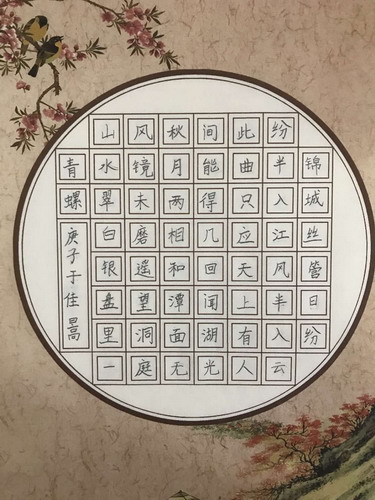 锦城丝管日纷
纷半入江风半入云
此曲只应天上有人
间能得几回闻湖光
秋月两相和潭面无
风镜未磨遥望洞庭
山水翠白银盘里一
青螺 庚子于佳暠